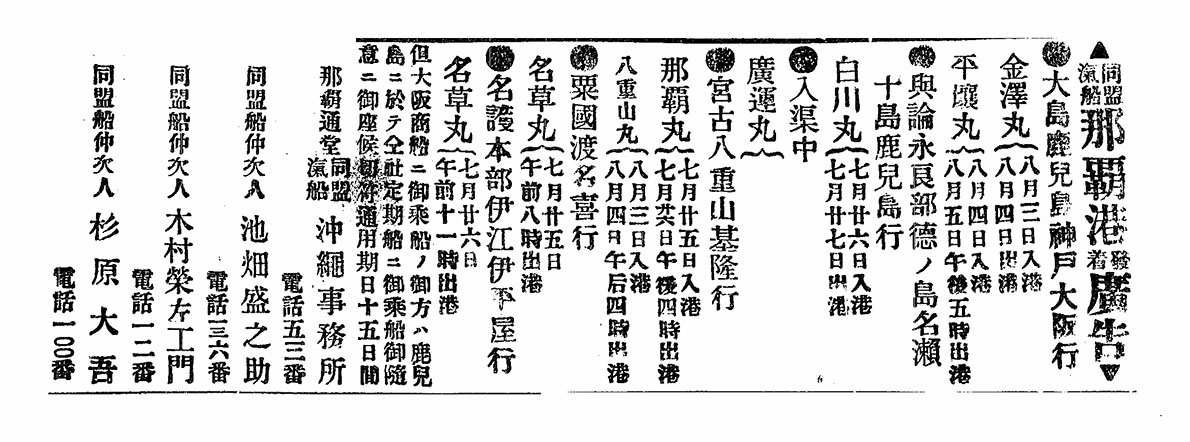 ▲同盟汽船那覇港發着廣告▼
●大島鹿兒島神戸大阪行
金澤丸 八月三日入港 八月四日出港
平壤丸 八月四日入港 八月五日午後五時出港
●與論永良部德ノ島名瀬
十島鹿兒島行
白川丸 七月廿六日入港 七月廿七日出港
●入渠中
廣運丸
●宮古八重山基隆行
那覇丸 七月廿五日入港 七月廿六日午後四時出港
八重山丸 八月三日入港 八月四日午后四時出港
●粟國渡名喜行
名草丸 七月廿五日 午前八時出港
●名護本部伊江伊平屋行
名草丸 七月廿六日 午前十一時出港
但大阪商船ニ御乘船ノ御方ハ鹿兒
島ニ於テ仝社定期船ニ御乘船御隨
意ニ御座候切符通用期日十五日間
那覇通堂 同盟汽船 沖繩事務所
電話五三番
同盟船仲次人 池畑盛之助
電話一三六番
同盟船仲次人 木村榮左工門
電話一二番
同盟船仲次人 杉原大吾
電話一〇〇番